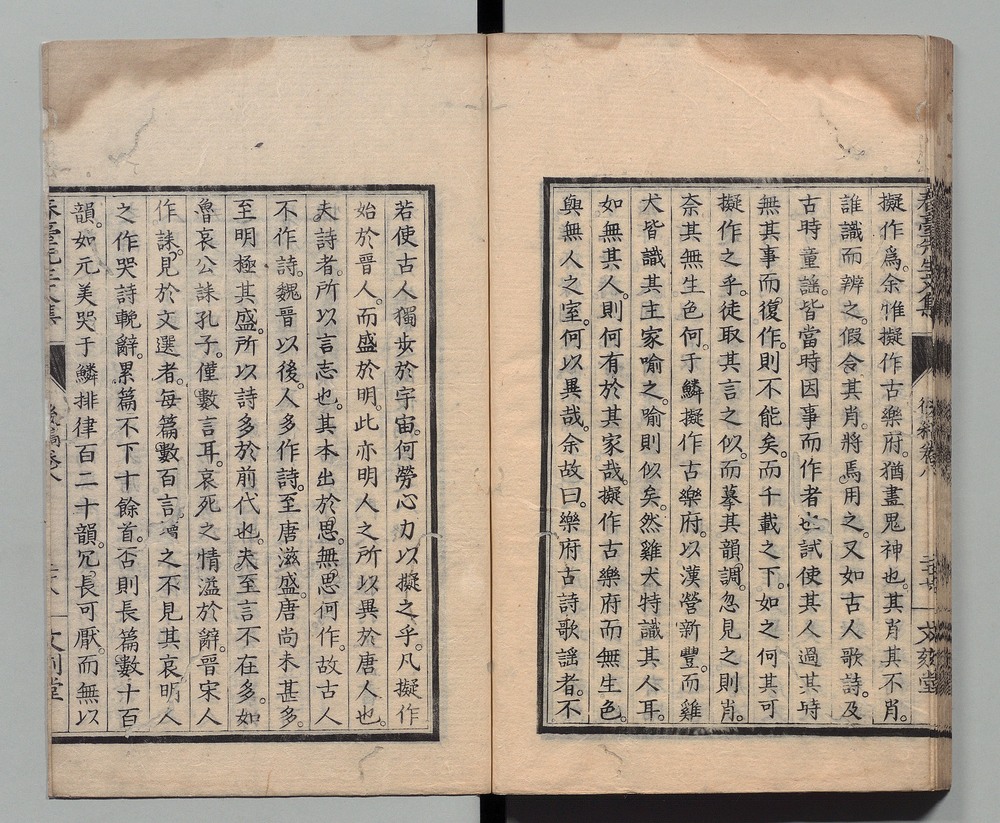 春臺先生文集
後稿卷八
擬作爲。余惟擬作古樂府。猶畫鬼神也。其肖其不肖。
誰識而辨之。假令其肖。將焉用之。又如古人歌詩。及
古時童謠。皆當時因事而作者也。試使其人過其時
無其事而復作。則不能矣。而千載之下。如之何其可
擬作之乎。徒取其言之似。而摹其韻調。忽見之則肖。
奈其無生色何。于鱗擬作古樂府。以漢營新豐。而雞
犬皆識其主家喻之。喻則似矣。然雞犬特識其人耳。
如無其人。則何有於其家哉。擬作古樂府而無生色。
與無人之室。何以異哉。余故曰。樂府古詩歌謠者。不
若使古人獨步於宇宙。何勞心力以擬之乎。凡擬作
始於晉人。而盛於明。此亦明人之所以異於唐人也。
夫詩者。所以言志也。其本出於思。無思何作。故古人
不作詩。魏晉以後。人多作詩。至唐滋盛。唐尚未甚多。
至明極其盛。所以詩多於前代也。夫至言不在多。如
魯哀公誄孔子。僅數言耳。哀死之情溢於辭。晉宋人
作誄。見於文選者。每篇數百言。讀之不見其哀。明人
之作哭詩輓辭。累篇不下十餘首。否則長篇數十百
韻。如元美哭于鱗排律百二十韻。冗長可厭。而無以
後稿卷八
文刻堂